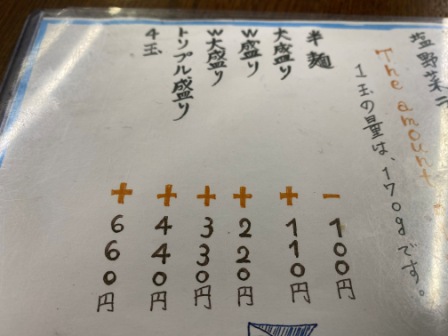 塩野菜
The amount
1玉の量は、170gです。
半麺 -100円
大盛り +110円
W盛り +220円
W大盛り +330円
トリプル盛り +440円
4玉 +660円